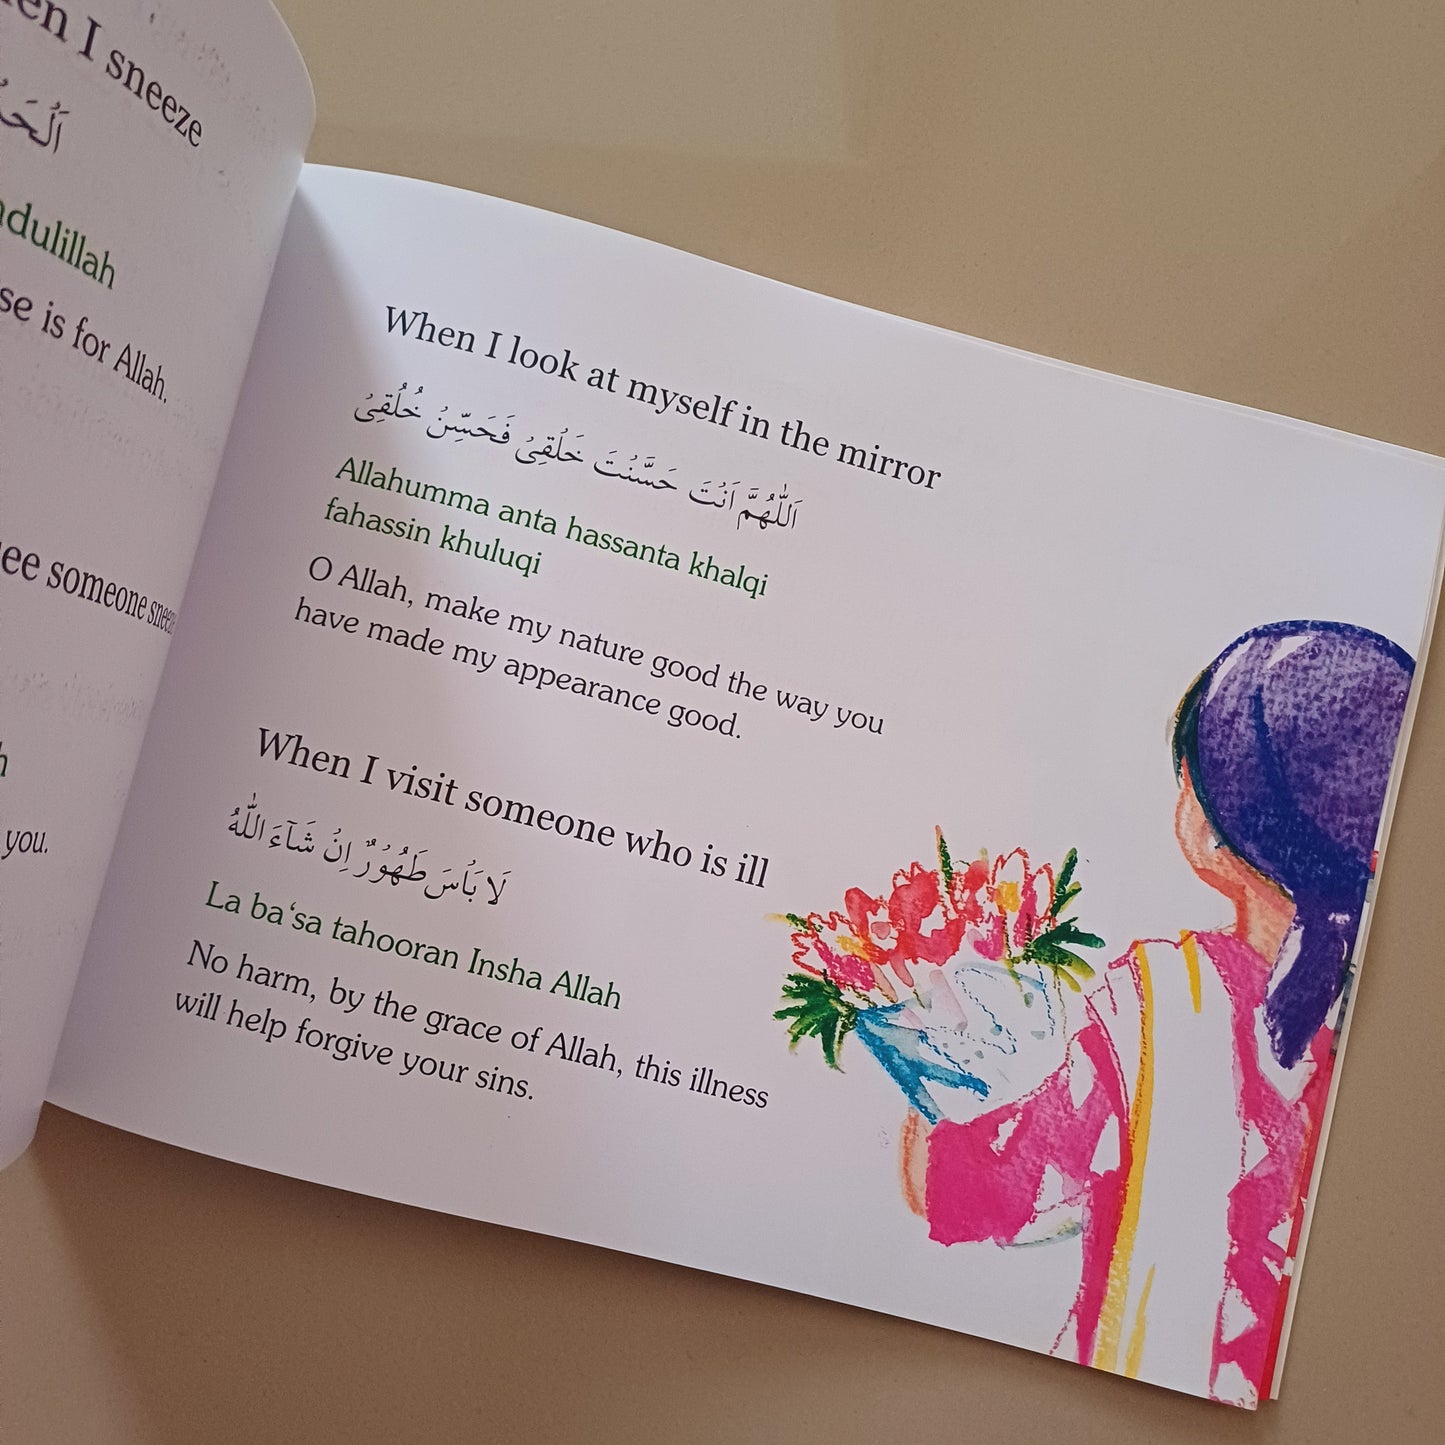 I sneeze
adulillah
is for Allah.
someone
you.
When I look at myself in the mirror
اَللّٰهُمَّ اَنْتَ حَسَّنْتَ خَلْقِىْ فَحَسِّنْ خُلُقِىْ
Allahumma anta hassanta khalqi
fahassin khuluqi
O Allah, make my nature good the way you
have made my appearance good.
When I visit someone who is ill
لَا بَاْسَ طَهُوْرٌ اِنْ شَآءَ اللّٰهُ
La ba‘sa tahooran Insha Allah
No harm, by the grace of Allah, this illness
will help forgive your sins.